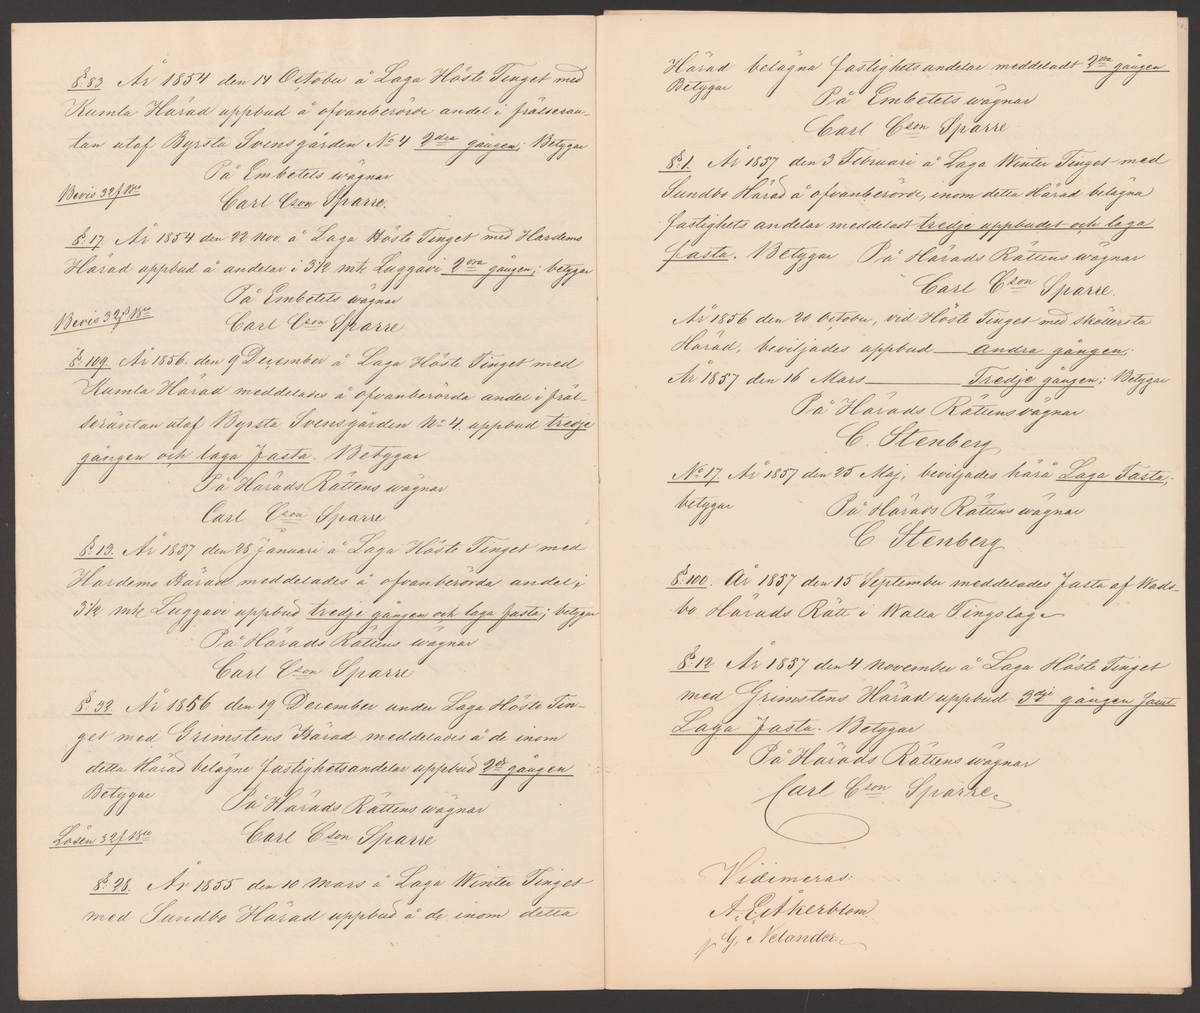 §. 83. År 1854 den 14 October å Laga Höste Tinget med
Kumla Härad uppbud å ofvanberörde andel i frälserän-
tan utaf Byrsta Svensgården No 4 2dra gången; Betygar
På Embetets wägnar
Bevis 32 f 18ne
Carl Cson Sparre.
§. 17. År 1854 den 22 Nov. å Laga Höste Tinget med Hardemo
Härad uppbud å andelar i 3 1/2 mk Luggavi 2dra gången; betygar
På Embetets wägnar
Bevis 32 f 18ne
Carl Cson Sparre
§. 109. År 1856. den 9 December å Laga Höste Tinget med
Kumla Härad meddelades å ofvanberörda andel i fräl-
seräntan utaf Byrsta Svensgården No 4. uppbud tredje
gången och laga fasta. Betygar
På Härads Rättens wägnar
Carl Cson Sparre
§. 13. År 1857 den 28 Januari å Laga Höste Tinget med
Hardemo Härad meddelades å ofvanberörda andel i
3 1/2 mk Luggavi uppbud tredje gången och laga fasta; betygar
På Härads Rättens wägnar
Carl Cson Sparre
§. 32. År 1856 den 19 December under Laga Höste Tin-
get med Grimstens Härad meddelades å de inom
detta Härad belägne fastighetsandelar uppbud 2dra gången
Betygar
På Härads Rättens wägnar
Lösen 32 f 18ne
Carl Cson Sparre
§. 28. År 1855 den 10 Mars å Laga Winter Tinget
med Sundbo Härad uppbud å de inom detta
Härad belägna fastighetsandelar meddeladt 2dra gången
Betygar
På Embetets wägnar
Carl Cson Sparre
§. 1. År 1857 den 3 Februari å Laga Winter Tinget med
Sundbo Härad å ofvanberörde, inom detta Härad belägna
fastighets andelar meddeladt tredje uppbudet och laga
fasta. Betygar På Härads Rättens wägnar
Carl Cson Sparre.
År 1856 den 20 October, vid Höste Tinget med Sköllersta
Härad, beviljades uppbud — andra gången;
År 1857 den 16 Mars — Tredje gången; Betygar
På Härads Rättens wägnar
C. Stenberg
No 17. År 1857 den 25 Maj, beviljades härå Laga Fasta;
betygar
På Härads Rättens wägnar
C Stenberg
§. 100. År 1857 den 15 September meddelades fasta af Wads-
bo Härads Rätt i Walla Tingslag
§. 12 År 1857 den 4 November å Laga Höste Tinget
med Grimstens Härad uppbud 3dje gången samt
Laga fasta. Betygar
På Härads Rättens wägnar
Carl Cson Sparre.
Vidimeras:
A. E. Åkerblom
G. Nelander.